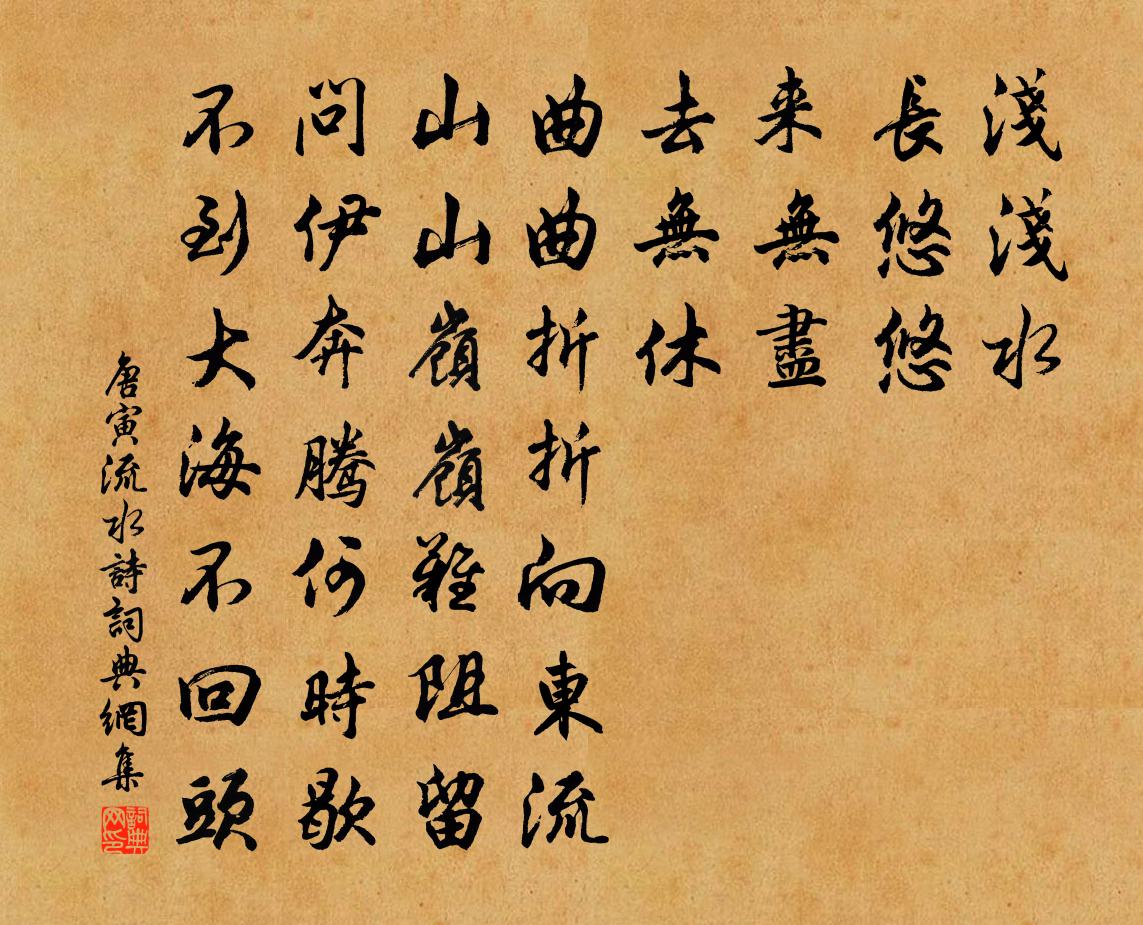 淺淺水
長悠悠
来無盡
去無休
曲曲折折向東流
山山嶺嶺難阻留
問伊奔騰何時歇
不到大海不回頭
唐寅流水詩詞典網集
詞典网印